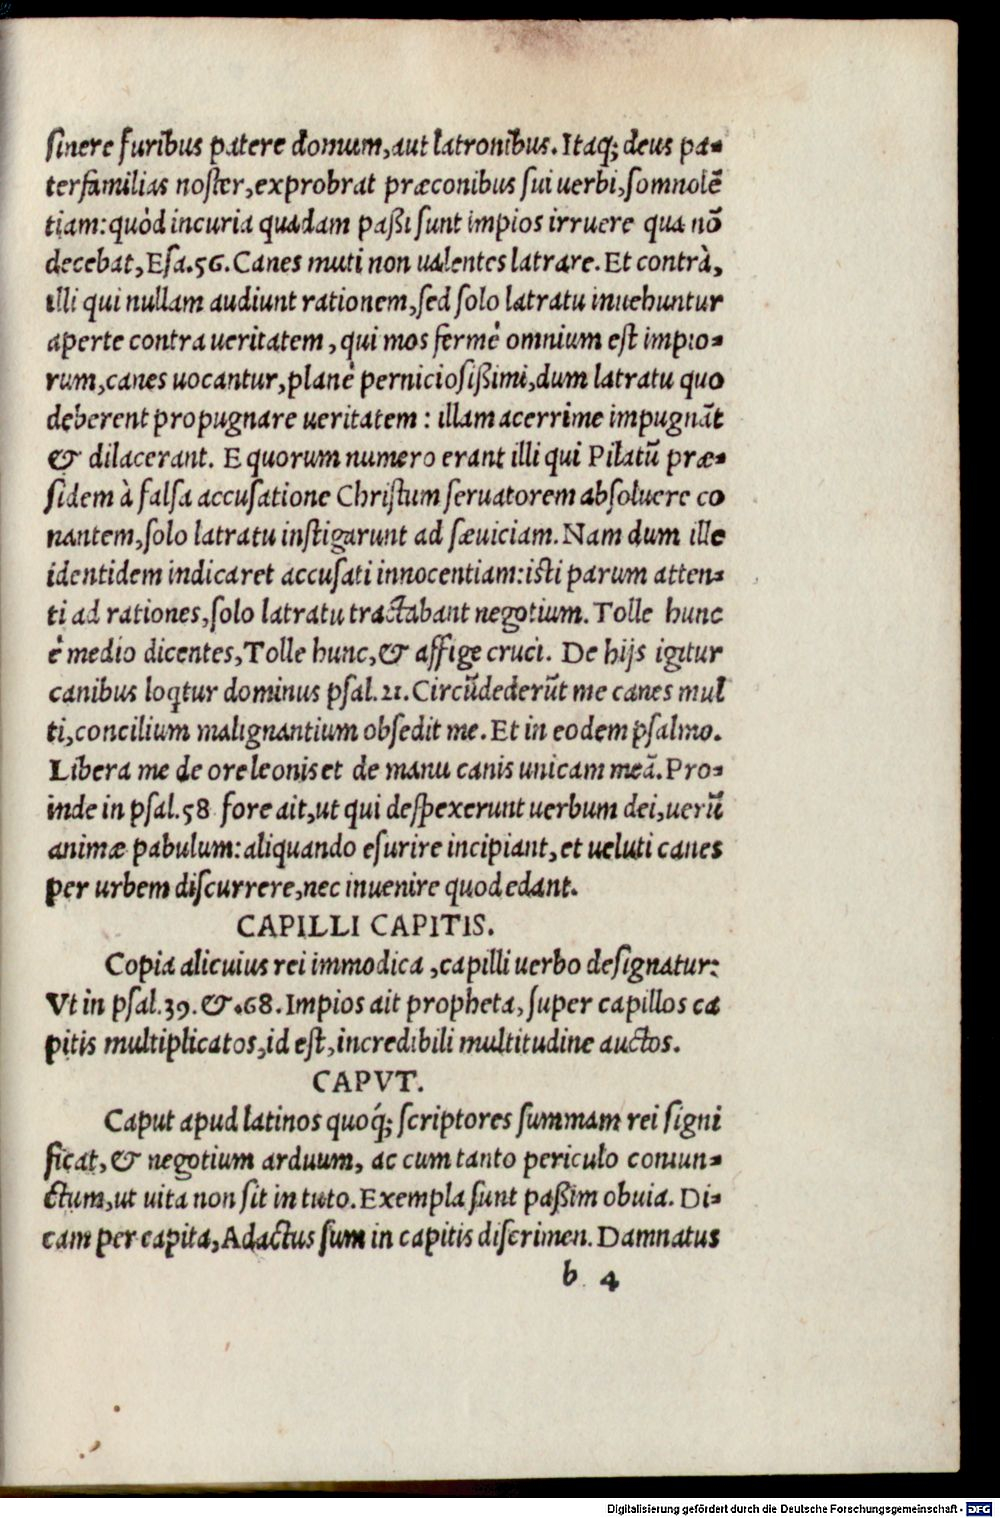 sinere furibus patere domum, aut latronibus. Itaq; deus pa-
terfamilias noster, exprobrat præconibus sui uerbi, somnolẽ
tiam: quòd incuria quadam paßi sunt impios irruere qua nõ
decebat, Esa. 56. Canes muti non ualentes latrare. Et contrà,
illi qui nullam audiunt rationem, sed solo latratu inuehuntur
aperte contra ueritatem, qui mos fermè omnium est impio-
rum, canes uocantur, planè perniciosißimi, dum latratu quo
deberent propugnare ueritatem: illam acerrime impugnãt
& dilacerant. E quorum numero erant illi qui Pilatũ præ-
sidem à falsa accusatione Christum seruatorem absoluere co
nantem, solo latratu instigarunt ad sæuiciam. Nam dum ille
identidem indicaret accusati innocentiam: isti parum atten-
ti ad rationes, solo latratu tractabant negotium. Tolle hunc
è medio dicentes, Tolle hunc, & affige cruci. De hijs igitur
canibus loq̃tur dominus psal. 21. Circũdederũt me canes mul
ti, concilium malignantium obsedit me. Et in eodem psalmo.
Libera me de ore leonis et de manu canis unicam meã. Pro-
inde in psal. 58 fore ait, ut qui despexerunt uerbum dei, uerũ
animæ pabulum: aliquando esurire incipiant, et ueluti canes
per urbem discurrere, nec inuenire quod edant.
CAPILLI CAPITIS.
Copia alicuius rei immodica, capilli uerbo designatur:
Vt in psal. 39. &. 68. Impios ait propheta, super capillos ca
pitis multiplicatos, id est, incredibili multitudine auctos.
CAPVT.
Caput apud latinos quoq́; scriptores summam rei signi
ficat, & negotium arduum, ac cum tanto periculo coniun-
ctum, ut uita non sit in tuto. Exempla sunt paßim obuia. Di-
cam per capita, Adactus sum in capitis discrimen. Damnatus
b 4
Digitalisierung gefördert durch die Deutsche Forschungsgemeinschaft - DFG